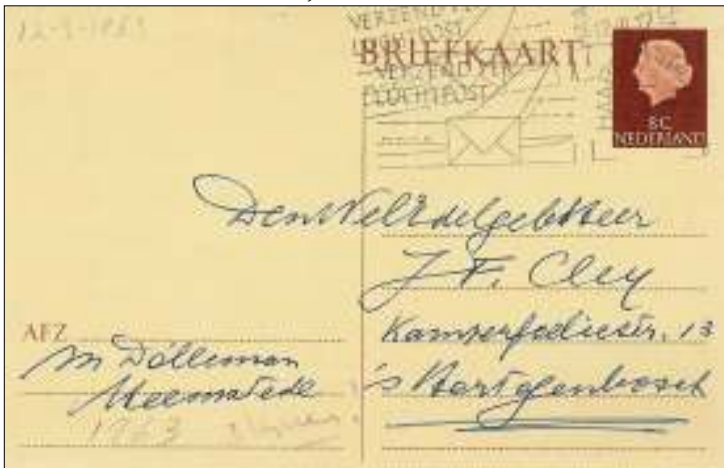 12-9-1963
VERZENDT PER
LUCHTPOST
BRIEFKAART
VERZENDT PER
LUCHTPOST
8 C
NEDERLAND
Den WelEdelgeb Heer
J. F. Cley
13
's Hertogenbosch
AFZ
M Dölleman
Heemstede
1963